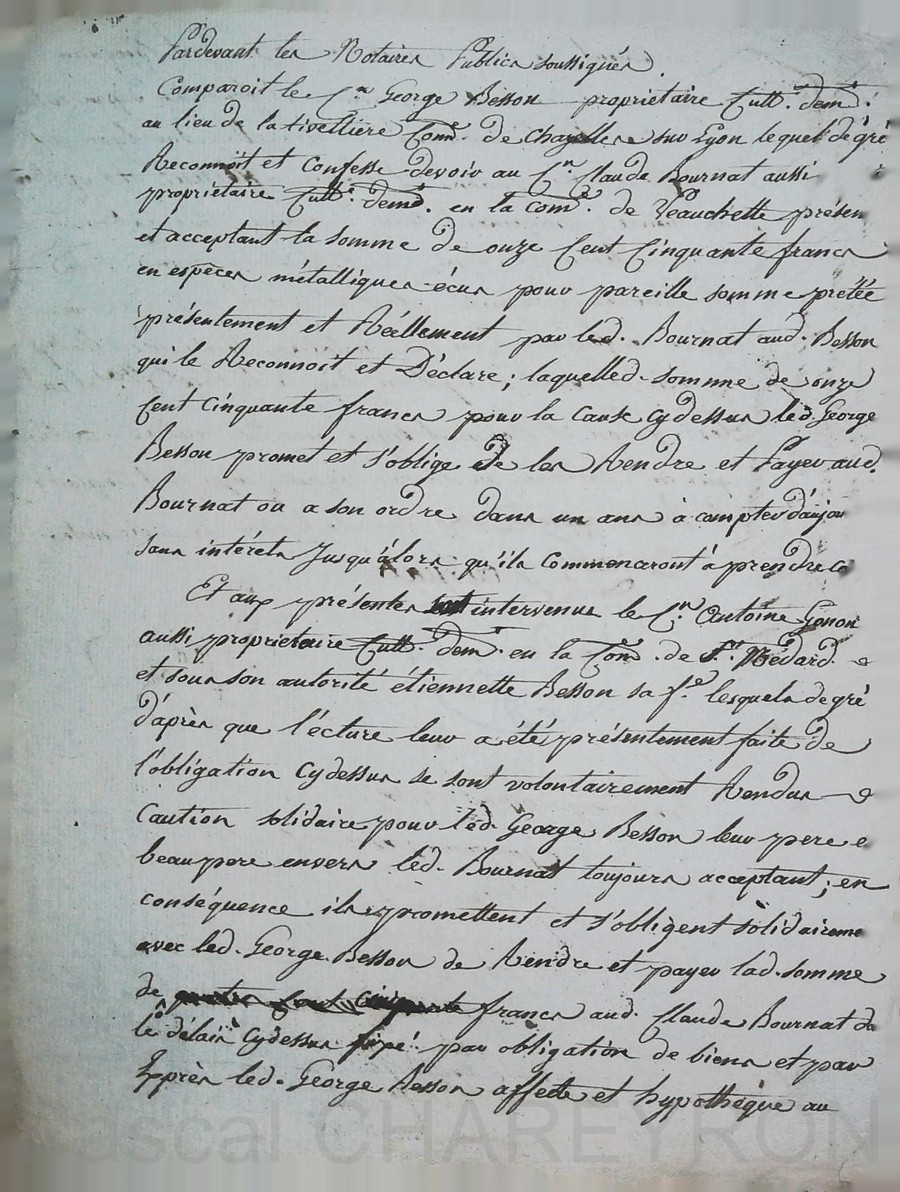 Pardevant les Notaires Publics soussignés
Comparoit le C.en George Besson proprietaire Cult. dem.t
au lieu de la tivelliere Com.e de Chazelles sur Lyon lequel de gré
Reconnoit et Confesse devoir au C.en Claude Bournat aussi
propriétaire Cult. dem.t en la Com.e de Veauchette présen
et acceptant la somme de onze Cent Cinquante francs
en espèces métalliques écus pour pareille somme pretée
présentement et Réellement par led. Bournat aud. Besson
qui le Reconnoit et Déclare; laquelled. somme de onze
Cent Cinquante francs pour la Cause Cydessus led. George
Besson promet et s'oblige de les Rendre et Payer aud.
Bournat ou a son ordre dans un ans à compter d'aujou
sans intérets Jusqu'álors qu'ils Commenceront à prendre
Et aux présentes intervenue le C.en Antoine Gonon
aussi proprietaire Cult. dem.t en la Com.e de S.t Médard e
et sous son autorité étiennette Besson sa f.e lesquels de gré
d'áprès que l'écture leur a été présentement faite de
l'obligation Cydessus se sont volontairement Rendus
Caution solidaire pour led. George Besson leur pere e
beaupere envers led. Bournat toujours acceptant; en
conséquence ils promettent et s'obligent solidaireme
avec led. George Besson de Rendre et payer lad. somme
de francs aud. Claude Bournat da
le délais Cydessus fixé par obligation de biens et par
Exprès led. George Besson affecte et hypothèque au
Pascal CHAREYRON